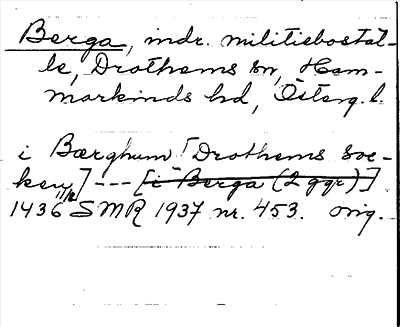 Berga, indr. militiebostäl-
le, Drothems sn, Ham-
markinds hd, Österg. l.
i Bærghum [Drothems soc-
ken] --- [i Berga (2 ggr)]
1436 11/12 SMR 1937 nr. 453. orig.